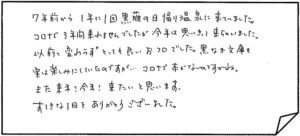 7年前から1年に1回黒薙の日帰り温泉に来ていました。
コロナで3年間来れませんでしたが今年は思いきって来ちゃいました。
以前と変わらずとっても良いおフロでした。黒なぎ文庫も
実は楽しみにしていたのですが… コロナで本がないのですかね。
また来年!今年!来たいと思います。
すてきな1日をありがとうございました。